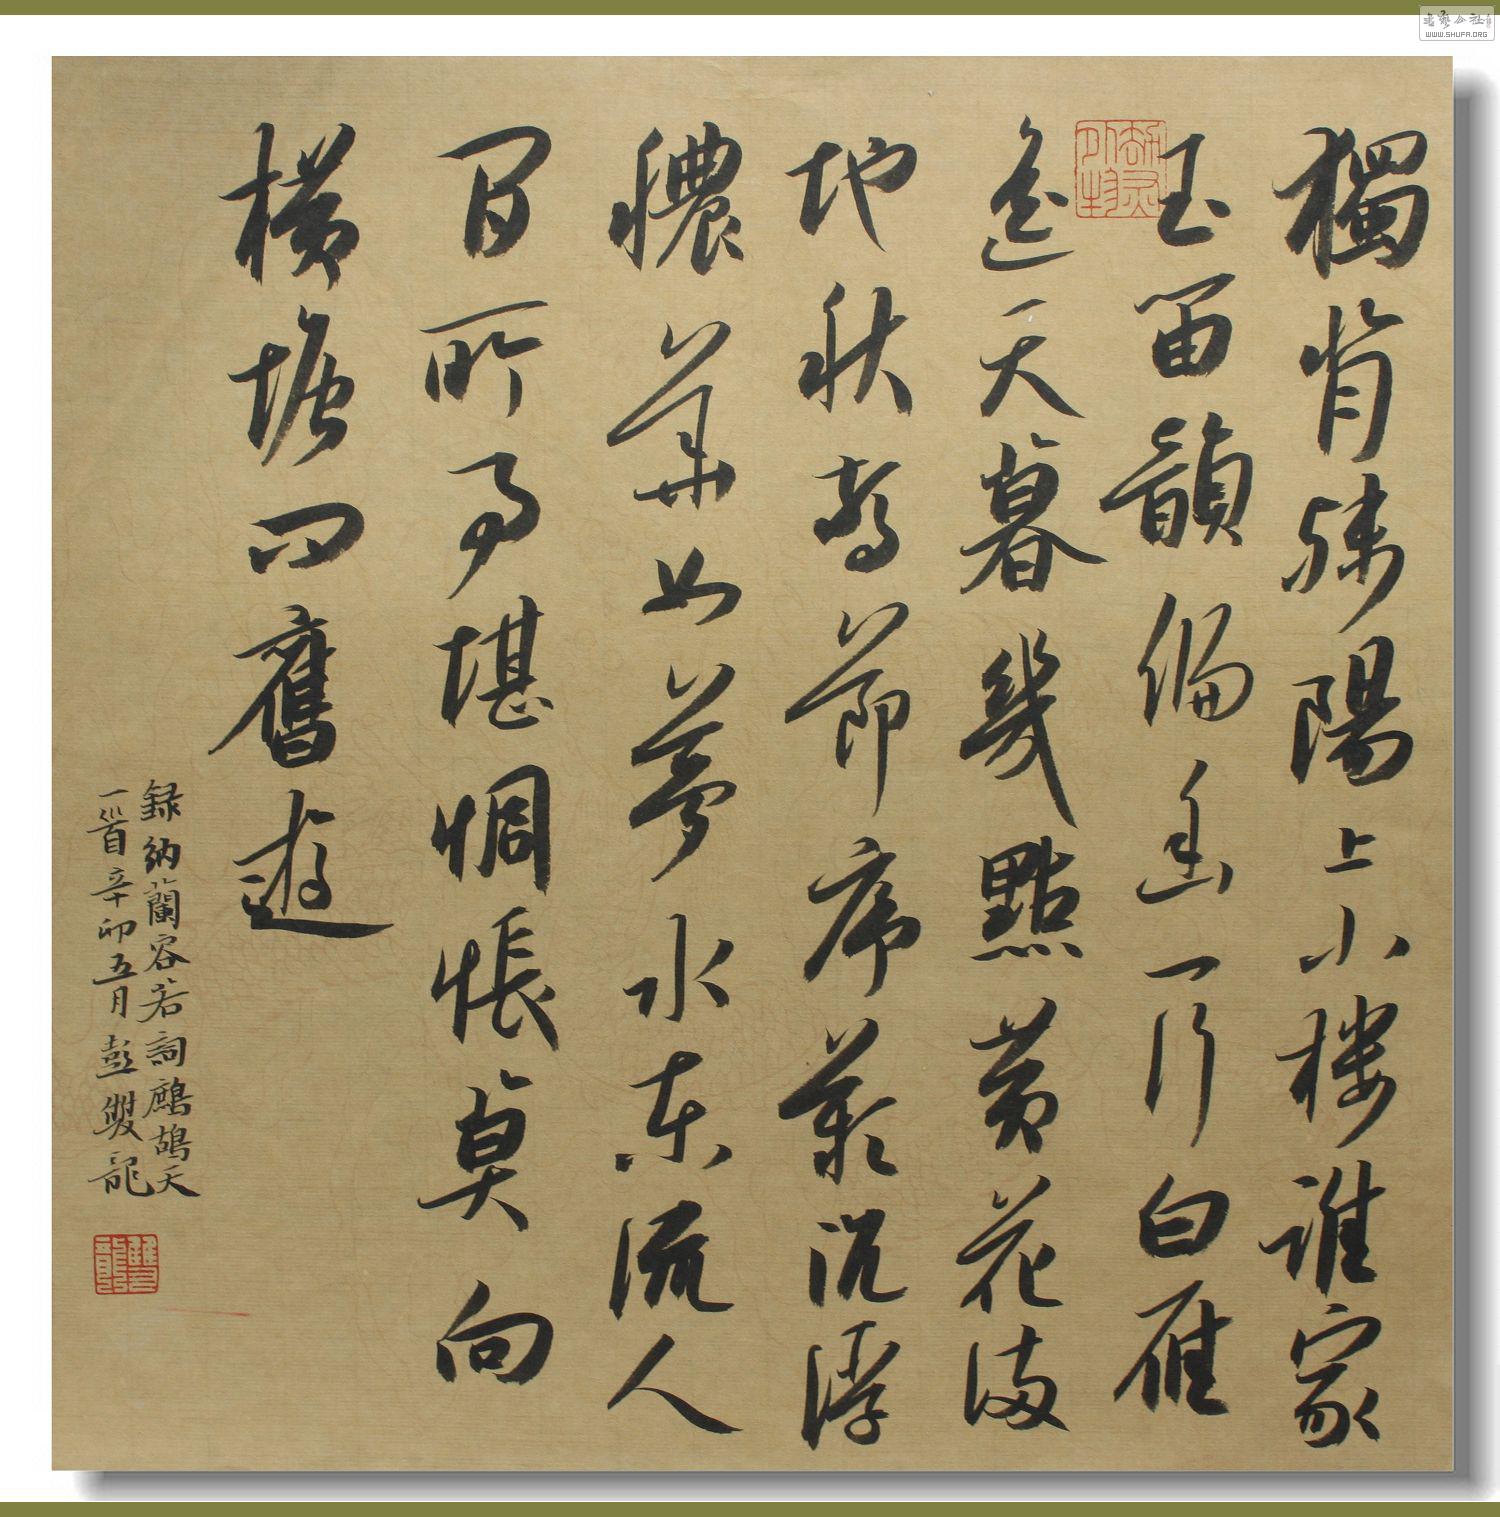 獨背残陽上小楼誰家
玉笛韻偏幽一行白雁
遥天暮幾點黄花满
地秋驚節序歎沉浮
穠華如夢水東流人
間所事堪惆悵莫向
横塘問舊遊
録納蘭容若詞鷓鴣天
一首辛卯五月彭雙龍
雙龍
書藝公社
WWW.SHUFA.ORG